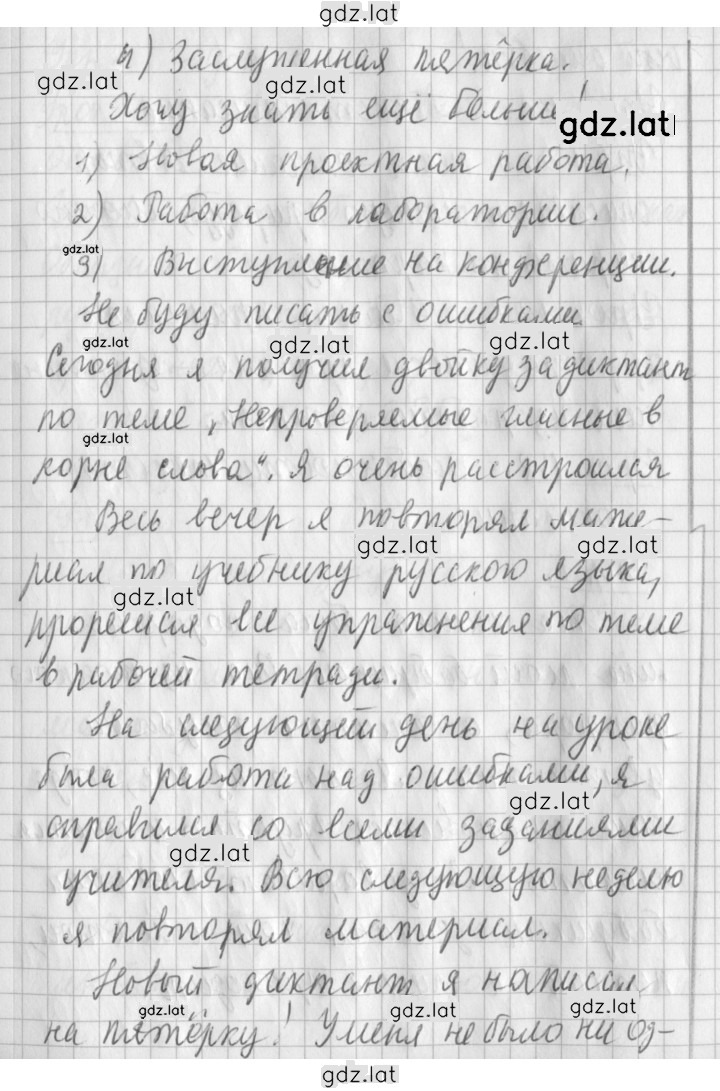 gdz.lat
4) Заслуженная пятёрка.
gdz.lat gdz.lat
Хочу знать ещё больше!
gdz.lat
1) Новая проектная работа.
2) Работа в лаборатории.
gdz.lat
3) Выступление на конференции.
Не буду писать с ошибками
gdz.lat gdz.lat gdz.lat
Сегодня я получил двойку за диктант
по теме „Непроверяемые гласные в
gdz.lat
корне слова“. Я очень расстроился
Весь вечер я повторял мате-
gdz.lat gdz.lat
риал по учебнику русского языка,
gdz.lat
прорешал все упражнения по теме
в рабочей тетради.
На следующий день на уроке
была работа над ошибками, я
gdz.lat
справился со всеми заданиями
gdz.lat
учителя. Всю следующую неделю
я повторял материал.
Новый диктант я написал
gdz.lat gdz.lat gdz.lat
на пятёрку! У меня не было ни од-
gdz.lat